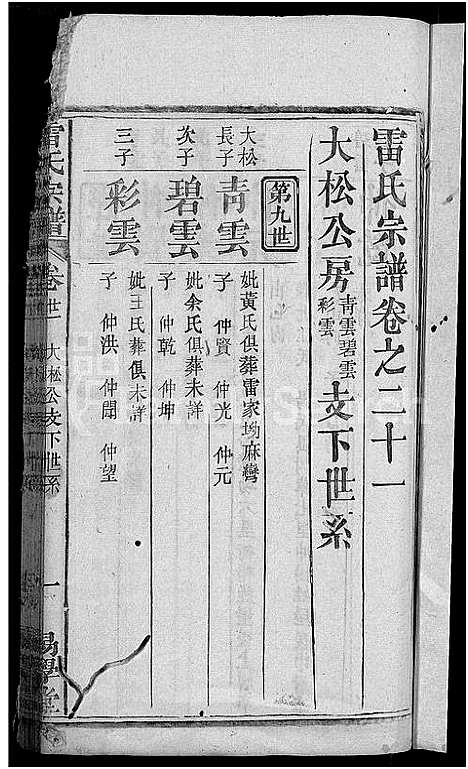 雷氏宗譜卷之二十一
大松公房青雲碧雲彩雲支下世系
第九世
大松長子
青雲
妣黃氏俱葬雷家坳麻灣
子 仲賢 仲光 仲元
次子
碧雲
妣余氏俱葬未詳
子 仲乾 仲坤
三子
彩雲
妣王氏葬俱未詳
子 仲洪 仲聞 仲望
雷氏宗譜 卷廿一 大松公支下世系 一 易學堂